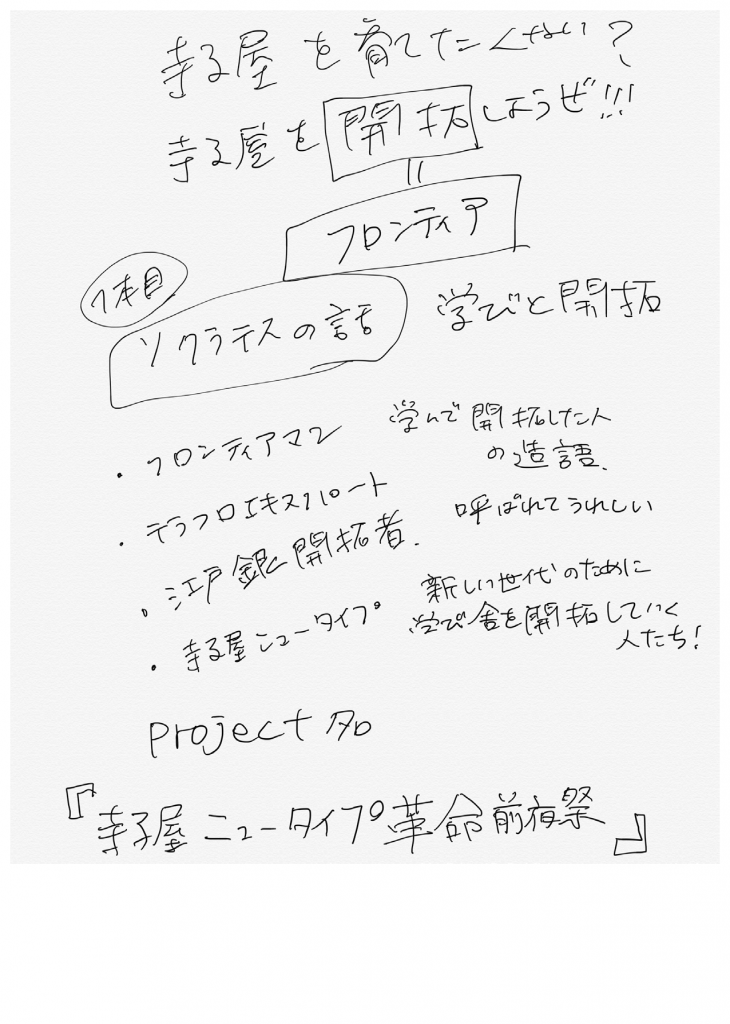 寺子屋を育てたくない?
寺子屋を開拓しようぜ!!!
=
フロンティア
1本目
ソクラテスの話
学びと開拓
・フロンティアマン
学んで開拓した人
の造語.
・テラフロエキスパート
呼ばれてうれしい
・江戸銀開拓者.
・寺子屋ニュータイプ
新しい世代のために
学び舎を開拓していく
人たち!
project 名
『寺子屋ニュータイプ革命前夜祭』